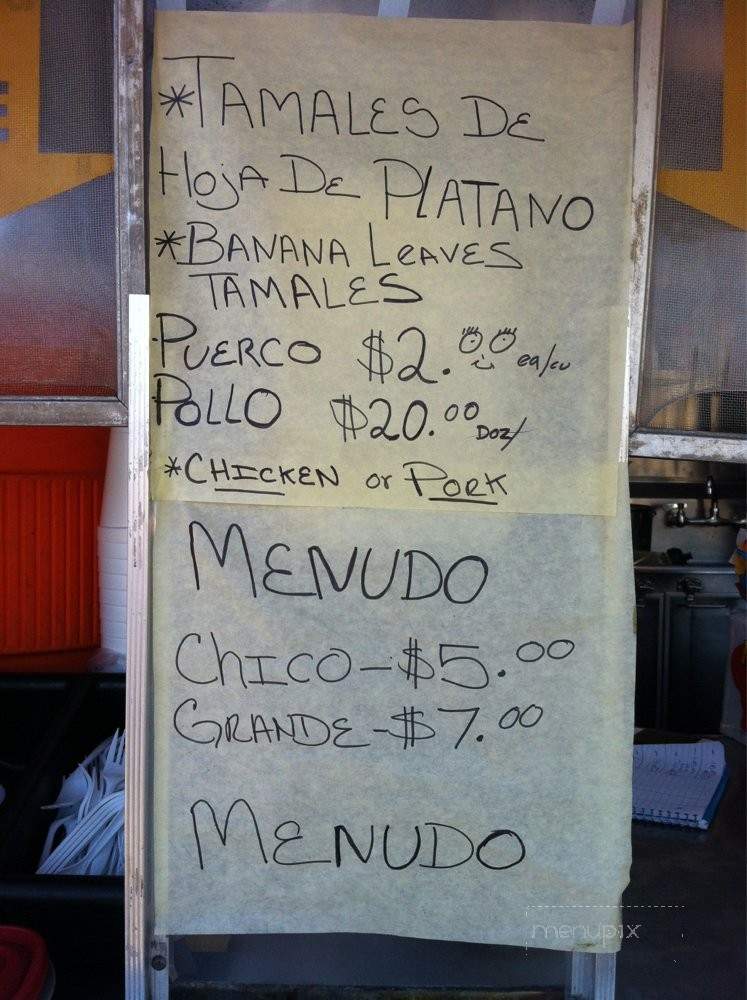 *TAMALES DE
HOJA DE PLATANO
*BANANA LEAVES
TAMALES
PUERCO $2.00 ea/cu
POLLO $20.00 DOZ/
*CHICKEN or PORK
MENUDO
CHICO-$5.00
GRANDE-$7.00
MENUDO
menupix